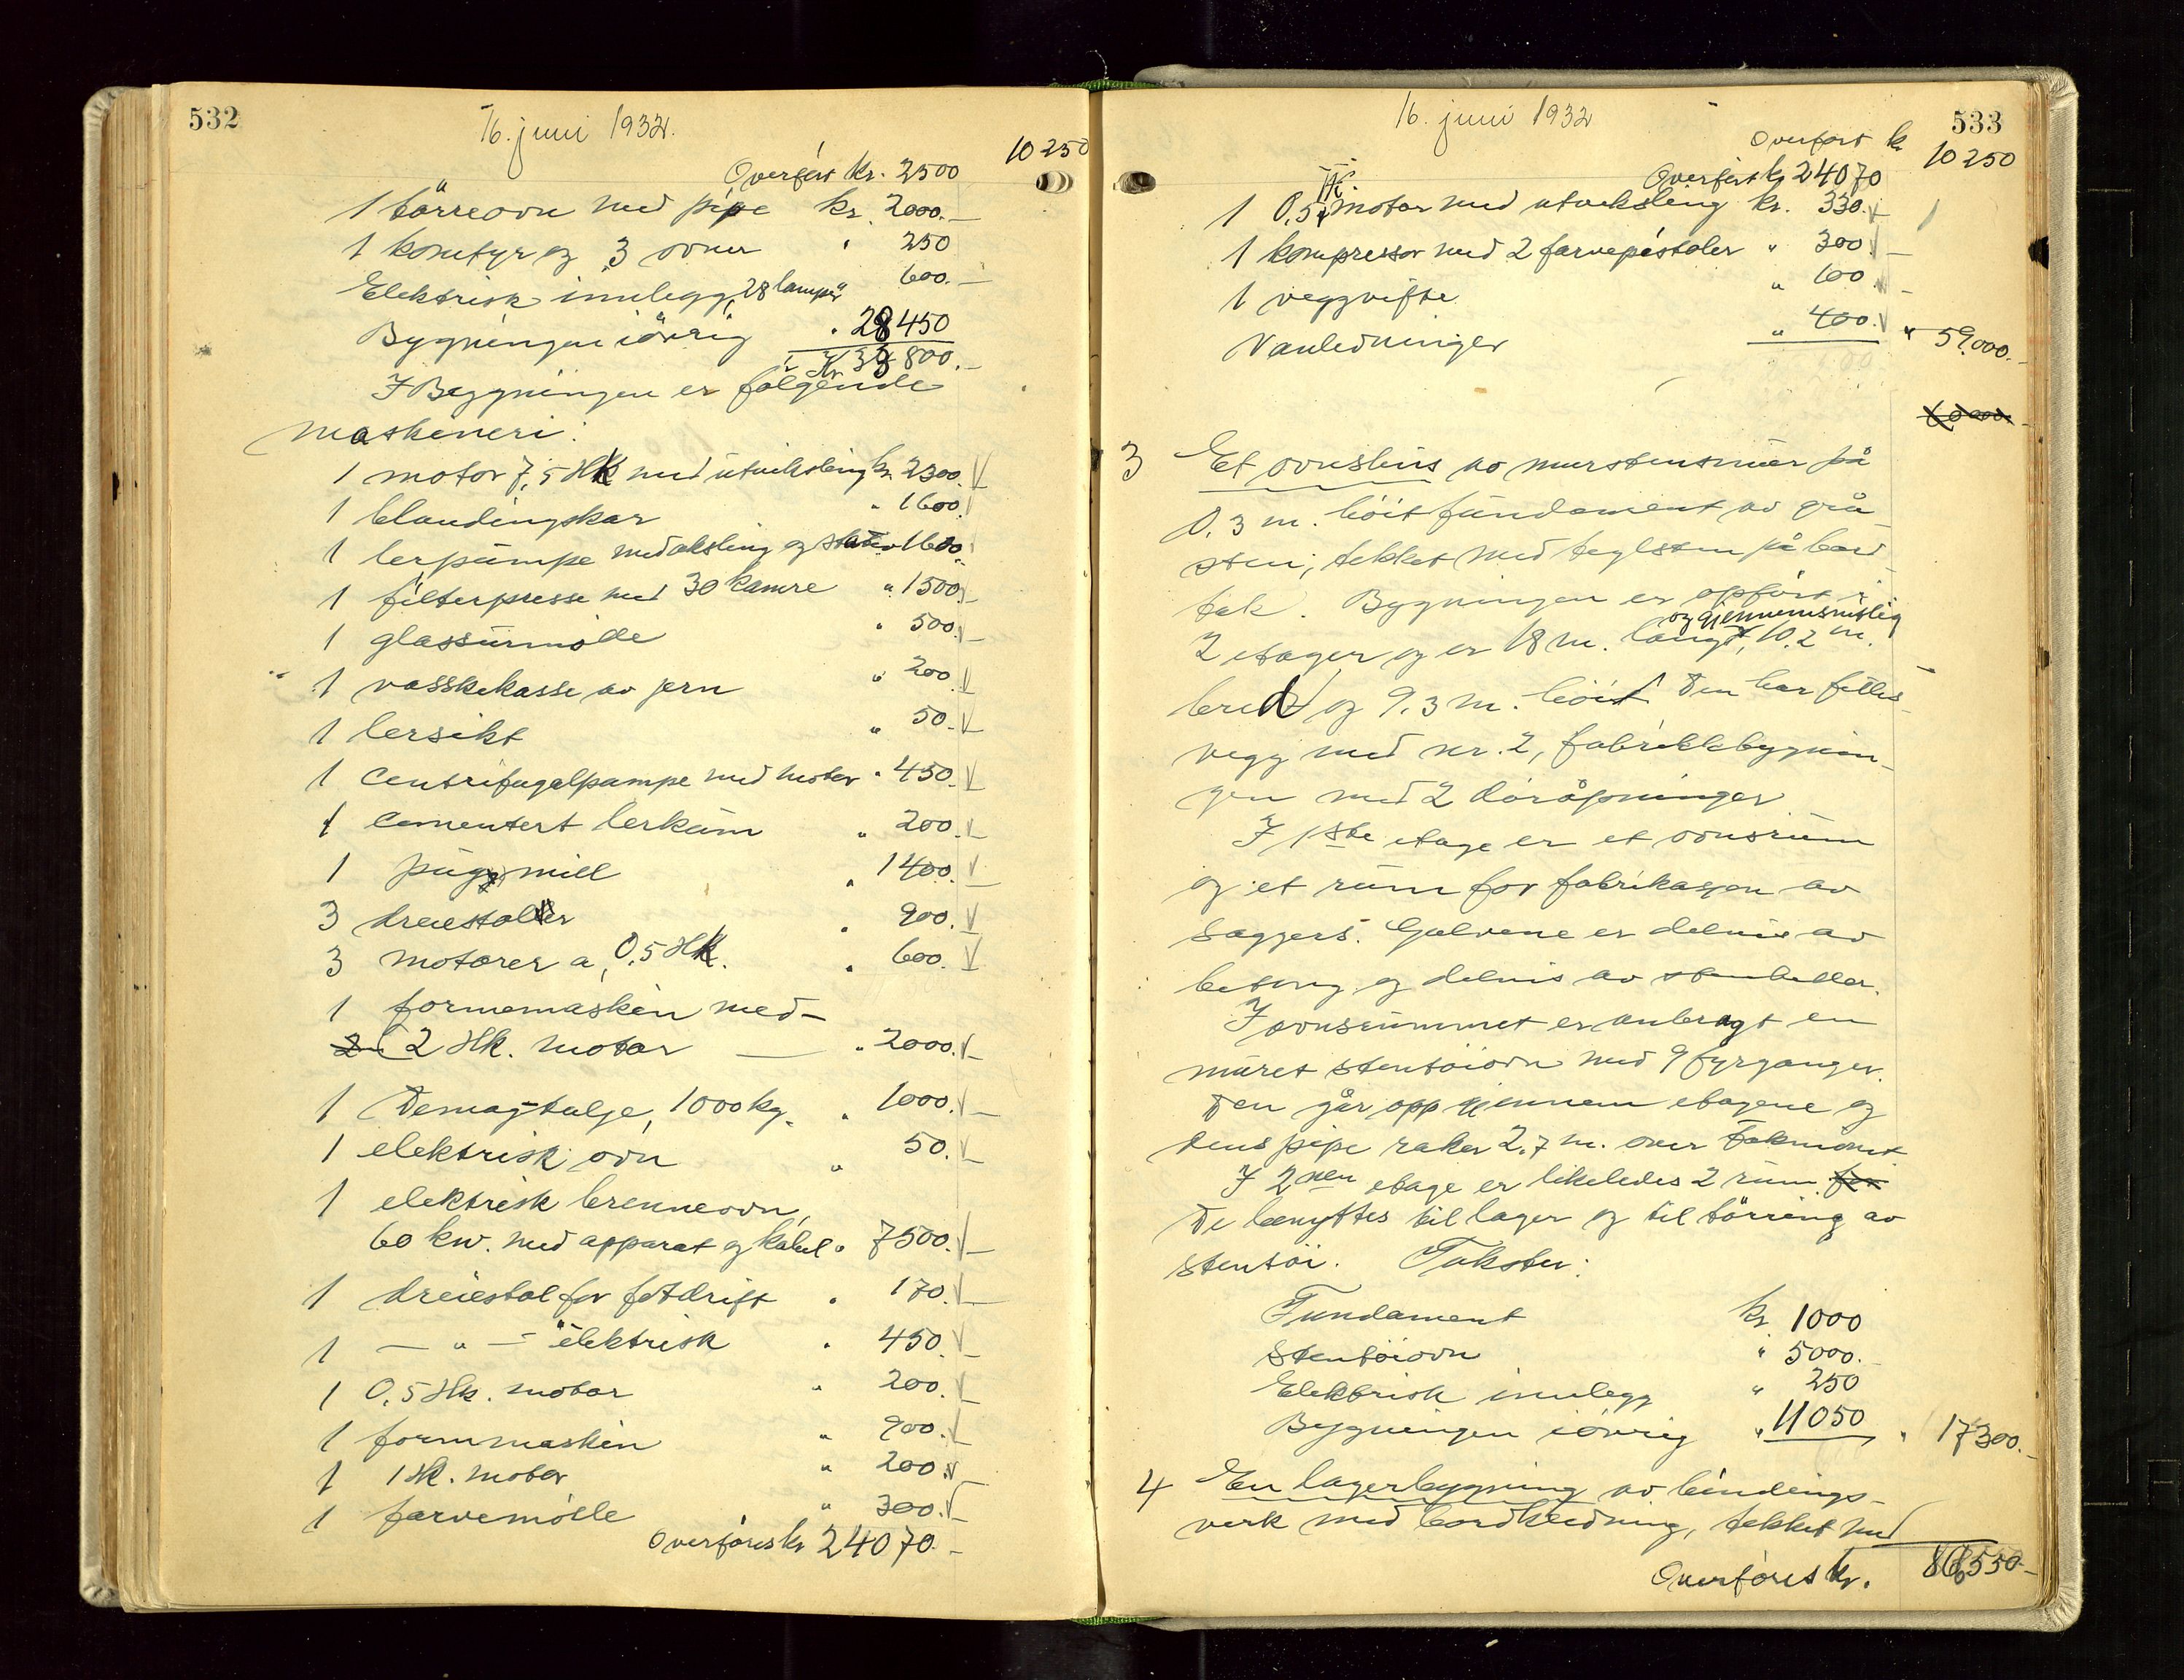 532
16. juni 1932.
10 250
Overført kr. 2500
1 törreovn med pipe kr. 2000.-
1 komfyr og 3 ovner " 250
Elektrisk innlegg, 28 lamper " 600.-
Bygningen iövrig " 28450
Kr 33 800.-
I Bygningen er fölgende
maskineri:
1 motor 7,5 HK med utveksling kr. 2300.-
1 blandingskar " 1600.
1 lerpumpe med aksling og " 1600.
1 filterpresse med 30 kamre " 1500.-
1 glassurmölle " 500.-
1 vasskekasse av jern " 200.-
1 lersikt " 50.-
1 Centrifugalpumpe med motor " 450.-
1 Cementert lerkum " 200.-
1 pugmill " 1400.-
3 dreiestoler " 900.-
3 motorer a 0,5 HK. " 600.-
1 formemaskin med-
2 Hk. motor — " 2000.-
1 Demagtalje, 1000 kg. " 1000.-
1 elektrisk ovn " 50.-
1 elektrisk brenneovn,
60 kw. med apparat og kabel " 7500.-
1 dreiestol for fotdrift " 170.-
1 — " — elektrisk " 450.-
1 0,5 Hk. motor " 200.-
1 formmaskin " 900.-
1 1 Hk. motor " 200.-
1 farvemölle " 300.-
Overföres kr 24070.-
533
16. juni 1932
Overført kr 10 250
Overført kr 24070
1 0,5 Hk. motor med utveksling kr. 330.-
1 kompressor med 2 farvepistoler " 300.-
1 veggvifte " 100.-
Vanledninger " 400.- " 59.000.-
3 Et ovnshus av murstensmur på
0.3 m. höit fundament av grå
sten, tekket med teglsten på bord
tak. Bygningen er opfört i
og gjennemsnitlig
2 etager og er 18 m. langt, 10.2 m.
bred og 9.3 m. höit. Den har felles
vegg med nr. 2, fabrikkbygnin-
gen med 2 döråpninger
I 1ste etage er et ovnsrum
og et rum for fabrikasjon av
Saggers. Golvene er delvis av
betong og delvis av stenheller.
I ovnsrummet er anbragt en
muret stentöiovn med 9 fyrganger.
Den går opp gjennem etagene og
dens pipe raker 2.7 m. over takmönet
I 2nen etage er likeledes 2 rum
De benyttes til lager og til törring av
stentöi. Takster:
Fundament kr 1000
Stentöiovn " 5000.-
Elektrisk innlegg " 250
Bygningen iövrig " 11050 " 17300.-
4 En lagerbygning av bindings-
verk med bordkledning, tekket med
Overföres kr. 86,550-